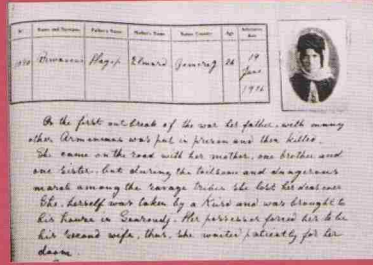 No. Name and Surname Father's Name Mother's Name Native Country Age Admission Date
Dirouhi Hagop 26 19
June
1926
On the first outbreak of the war her father, with many
other Armenians was put in prison and then killed.
She came on the road with her mother, one brother and
one sister, but during the toilsome and dangerous
march among the savage tribes she lost her dear ones
She, herself was taken by a Kurd and was brought to
his house in Her possessor forced her to be
his second wife, thus, she waited patiently for her
doom.